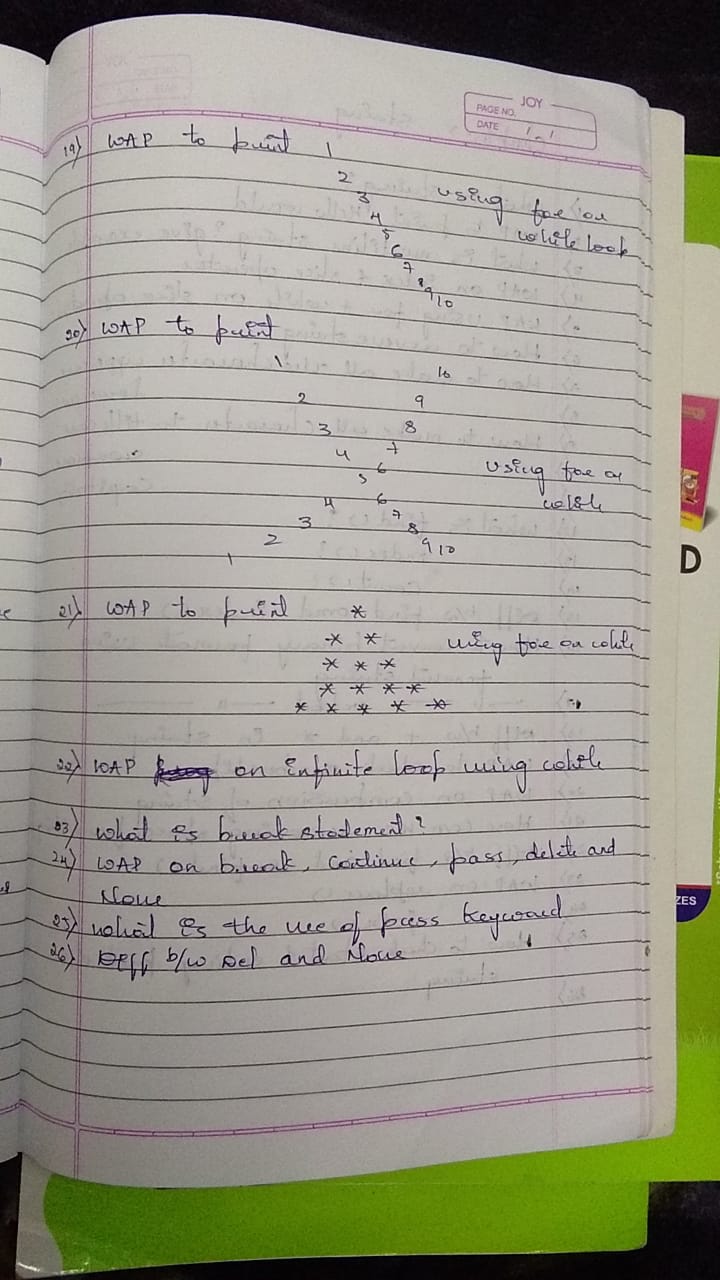 JOY
PAGE NO.
DATE
19) WAP to print 1
2 using for or
3 while loop
4
5
6
7
8
9 10
20) WAP to print
1 10
2 9
3 8
4 7
5 6 using for or
4 6 while
3 7
2 8
1 9 10
21) WAP to print *
* * using for or while
* * *
* * * *
* * * * *
22) WAP on infinite loop using while
23) what is break statement?
24) WAP on break, continue, pass, delete and
None
25) what is the use of pass keyword
26) Diff b/w Del and None
D
ZES